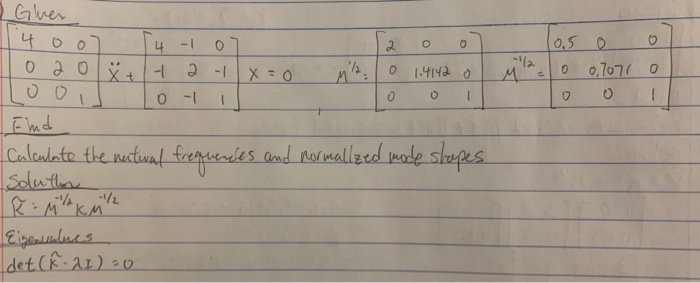 Given
[4 0 0; 0 2 0; 0 0 1] ẍ + [4 -1 0; -1 2 -1; 0 -1 1] x = 0 M^1/2 = [2 0 0; 0 1.4142 0; 0 0 1] M^-1/2 = [0.5 0 0; 0 0.7071 0; 0 0 1]
Find
Calculate the natural frequencies and normalized mode shapes
Solution
K̃ = M^-1/2 K M^-1/2
Eigenvalues
det(K̃ - λI) = 0